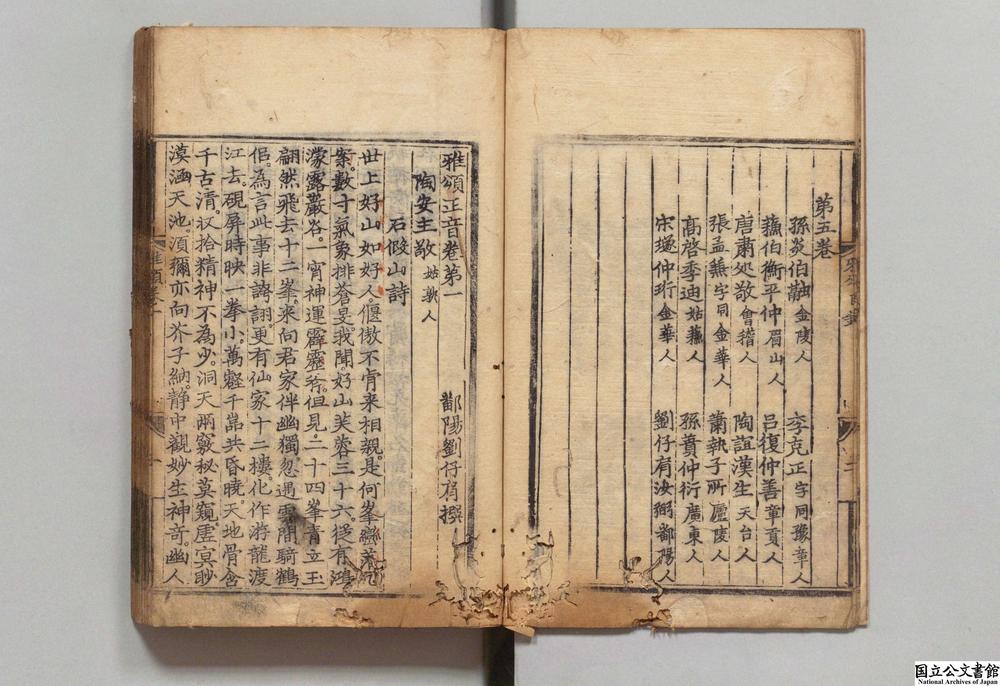 第五卷
孫炎伯融金陵人　李克正字同豫章人
蘓伯衡平仲眉山人　呂復仲善章貢人
唐肅処敬會稽人　陶誼漢生天台人
張孟蕪字同金華人　蕭執子所廬陵人
髙啓季迪姑蘓人　孫蕡仲衍廣東人
宋璲仲珩金華人　劉仔肩汝弼鄱陽人
雅頌正音卷第一
鄱陽劉仔肩撰
陶安主敬姑孰人
石假山詩
世上好山如好人。偃傲不肯来相親。是何峯巒
案。數寸氣象排蒼旻。我聞。好山芙蓉三十六。從有鴻
濛露巖谷。一宵神運霹靈斧。但見。二十四峯青立玉
翩然飛去十二峯。来向君家伴幽獨忽遇雲間騎鶴
侣。為言此事非誇詡。更有仙家十二樓。化作游龍渡
江去。硯屏時映一拳小。萬壑千巖共昏曉。天地骨含
千古清。收拾精神不為少。洞天兩竅秘莫窺。虛冥眇
漠涵天池。湏彌亦向芥子納。静中觀妙生神奇。幽人
国立公文書館
National Archives of Japan